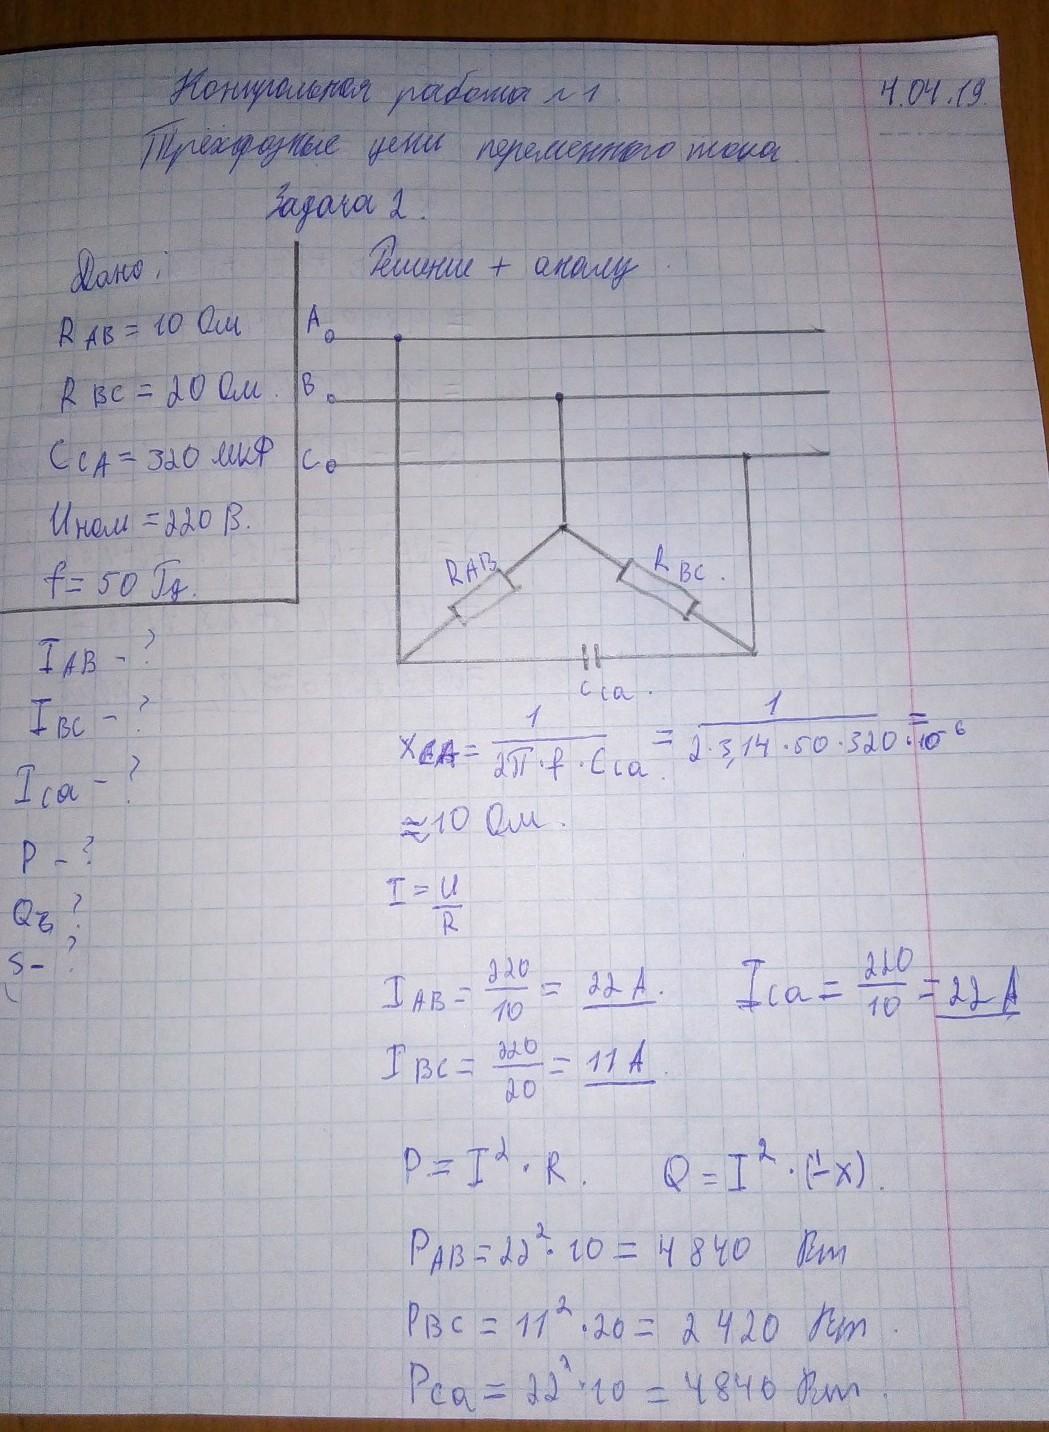 Контрольная работа №1 4.04.19.
Трёхфазные цепи переменного тока.
Задача 2.
Дано:
R AB = 10 Ом
R BC = 20 Ом.
C CA = 320 мкФ
Uном = 220 В.
f = 50 Гц.
I AB - ?
I BC - ?
I ca - ?
P - ?
Q - ?
S - ?
Решение + анализ.
A
B
C
R AB
R BC.
C ca.
X CA = 1 / 2π · f · C ca. = 1 / 2 · 3,14 · 50 · 320 · 10⁻⁶ =
≈ 10 Ом.
I = U / R
I AB = 220 / 10 = 22 A. I ca = 220 / 10 = 22 A
I BC = 220 / 20 = 11 A.
P = I² · R. Q = I² · (-X).
P AB = 22² · 10 = 4 840 Вт
P BC = 11² · 20 = 2 420 Вт.
P ca = 22² · 10 = 4840 Вт.